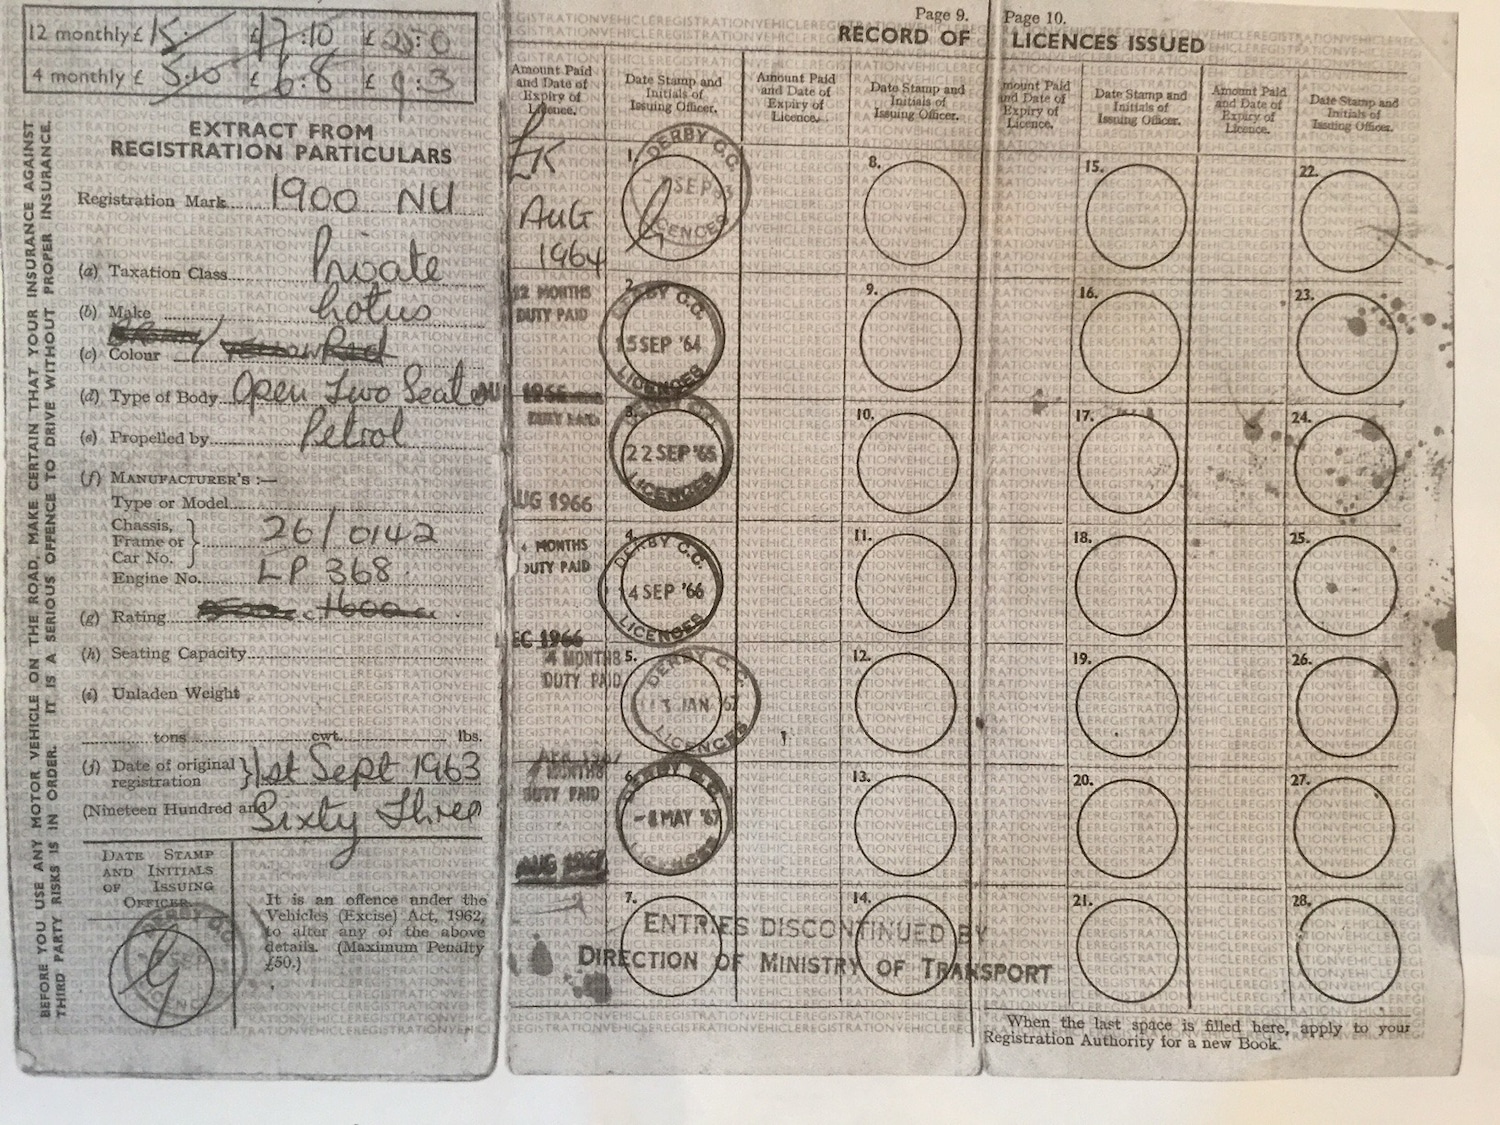 12 monthly £ 15.- £17:10 £25:0
4 monthly £ 5:10 £6:8 £9:3
EXTRACT FROM
REGISTRATION PARTICULARS
Registration Mark 1900 NU
(a) Taxation Class Private
(b) Make Lotus
(c) Colour Yellow Red
(d) Type of Body Open Two Seater
(e) Propelled by Petrol
(f) MANUFACTURER'S :—
Type or Model
Chassis,
Frame or
Car No. 26/0142
Engine No. LP 368
(g) Rating 1600
(h) Seating Capacity
(i) Unladen Weight
tons cwt. lbs.
(j) Date of original
registration 1st Sept 1963
(Nineteen Hundred and Sixty Three
DATE STAMP
AND INITIALS
OF ISSUING
OFFICER
DERBY C.C.
SEP
It is an offence under the
Vehicles (Excise) Act, 1962,
to alter any of the above
details. (Maximum Penalty
£50.)
BEFORE YOU USE ANY MOTOR VEHICLE ON THE ROAD, MAKE CERTAIN THAT YOUR INSURANCE AGAINST
THIRD PARTY RISKS IS IN ORDER. IT IS A SERIOUS OFFENCE TO DRIVE WITHOUT PROPER INSURANCE.
Page 9.
RECORD OF
Amount Paid
and Date of
Expiry of
Licence.
Date Stamp and
Initials of
Issuing Officer.
Amount Paid
and Date of
Expiry of
Licence.
Date Stamp and
Initials of
Issuing Officer.
AUG
1964
1.
DERBY C.C.
SEP 63
LICENCES
8.
12 MONTHS
DUTY PAID
2.
DERBY C.C.
15 SEP '64
LICENCES
9.
DUTY PAID
AUG 1966
3.
22 SEP '65
LICENCES
10.
4 MONTHS
DUTY PAID
DEC 1966
4.
DERBY C.C.
14 SEP '66
LICENCES
11.
4 MONTHS
DUTY PAID
APR 1967
5.
DERBY C.C.
13 JAN '67
LICENCES
12.
4 MONTHS
DUTY PAID
AUG 1967
6.
DERBY C.C.
MAY '67
LICENCES
13.
7.
14.
ENTRIES DISCONTINUED BY
DIRECTION OF MINISTRY OF TRANSPORT
Page 10.
LICENCES ISSUED
Amount Paid
and Date of
Expiry of
Licence.
Date Stamp and
Initials of
Issuing Officer.
Amount Paid
and Date of
Expiry of
Licence.
Date Stamp and
Initials of
Issuing Officer.
15.
22.
16.
23.
17.
24.
18.
25.
19.
26.
20.
27.
21.
28.
When the last space is filled here, apply to your
Registration Authority for a new Book.